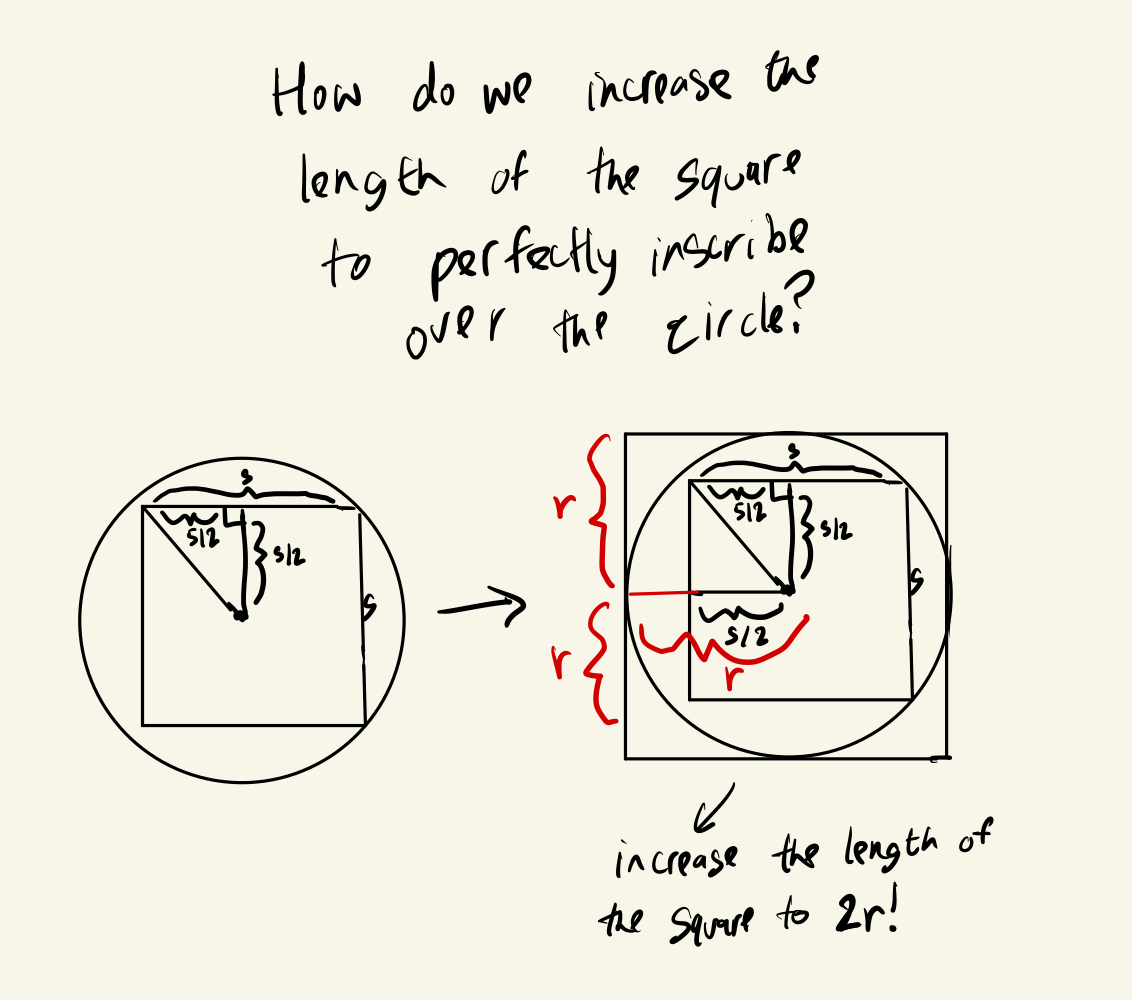 How do we increase the
length of the square
to perfectly inscribe
over the circle?
s
s/2
s/2
s
r
s
s/2
s/2
s
s/2
r
r
increase the length of
the square to 2r!